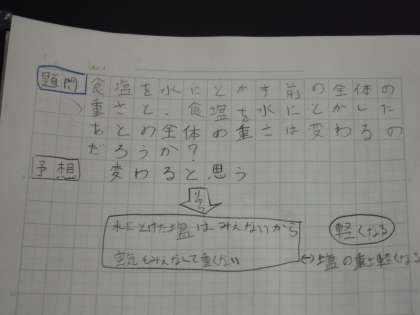 題問 食塩を水にとかす前の全体の
重さと、食塩を水にとかした
あとの全体の重さは変わるの
だろうか?
予想 変わると思う
水にとけた塩はみんないから
軽くなる
⇔塩の重さ軽くなる